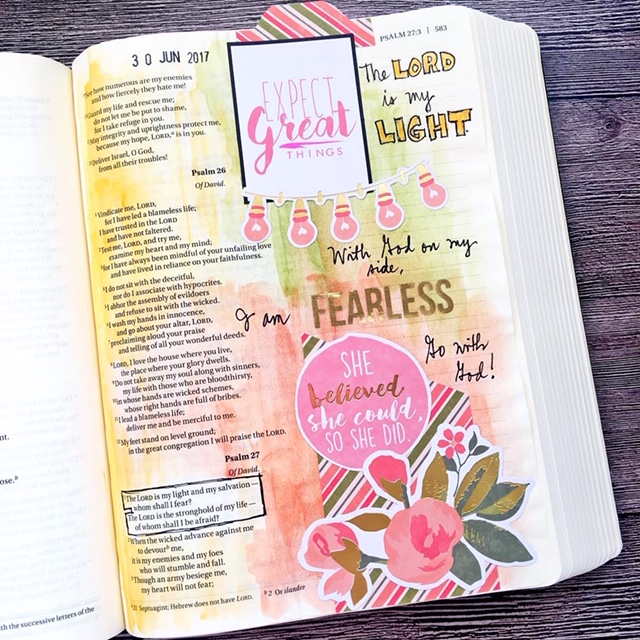 PSALM 27:3 | 583
30 JUN 2017
See how numerous are my enemies
and how fiercely they hate me!
Guard my life and rescue me;
do not let me be put to shame,
for I take refuge in you.
May integrity and uprightness protect me,
because my hope, LORD,ᵃ is in you.
Deliver Israel, O God,
from all their troubles!
Psalm 26
Of David.
¹Vindicate me, LORD,
for I have led a blameless life;
I have trusted in the LORD
and have not faltered.
²Test me, LORD, and try me,
examine my heart and my mind;
³for I have always been mindful of your unfailing love
and have lived in reliance on your faithfulness.
⁴I do not sit with the deceitful,
nor do I associate with hypocrites.
⁵I abhor the assembly of evildoers
and refuse to sit with the wicked.
⁶I wash my hands in innocence,
and go about your altar, LORD,
⁷proclaiming aloud your praise
and telling of all your wonderful deeds.
⁸LORD, I love the house where you live,
the place where your glory dwells.
⁹Do not take away my soul along with sinners,
my life with those who are bloodthirsty,
¹⁰in whose hands are wicked schemes,
whose right hands are full of bribes.
¹¹I lead a blameless life;
deliver me and be merciful to me.
¹²My feet stand on level ground;
in the great congregation I will praise the LORD.
Psalm 27
Of David.
¹The LORD is my light and my salvation—
whom shall I fear?
The LORD is the stronghold of my life—
of whom shall I be afraid?
²When the wicked advance against me
to devourᵇ me,
it is my enemies and my foes
who will stumble and fall.
³Though an army besiege me,
my heart will not fear;
ᵃ 21 Septuagint; Hebrew does not have LORD.
ᵇ 2 Or slander
EXPECT
Great
THINGS
The LORD
is my
LIGHT
With God on my
side,
I am FEARLESS
Go with
God!
SHE
believed
she could,
SO SHE DID.
with the successive letters of the